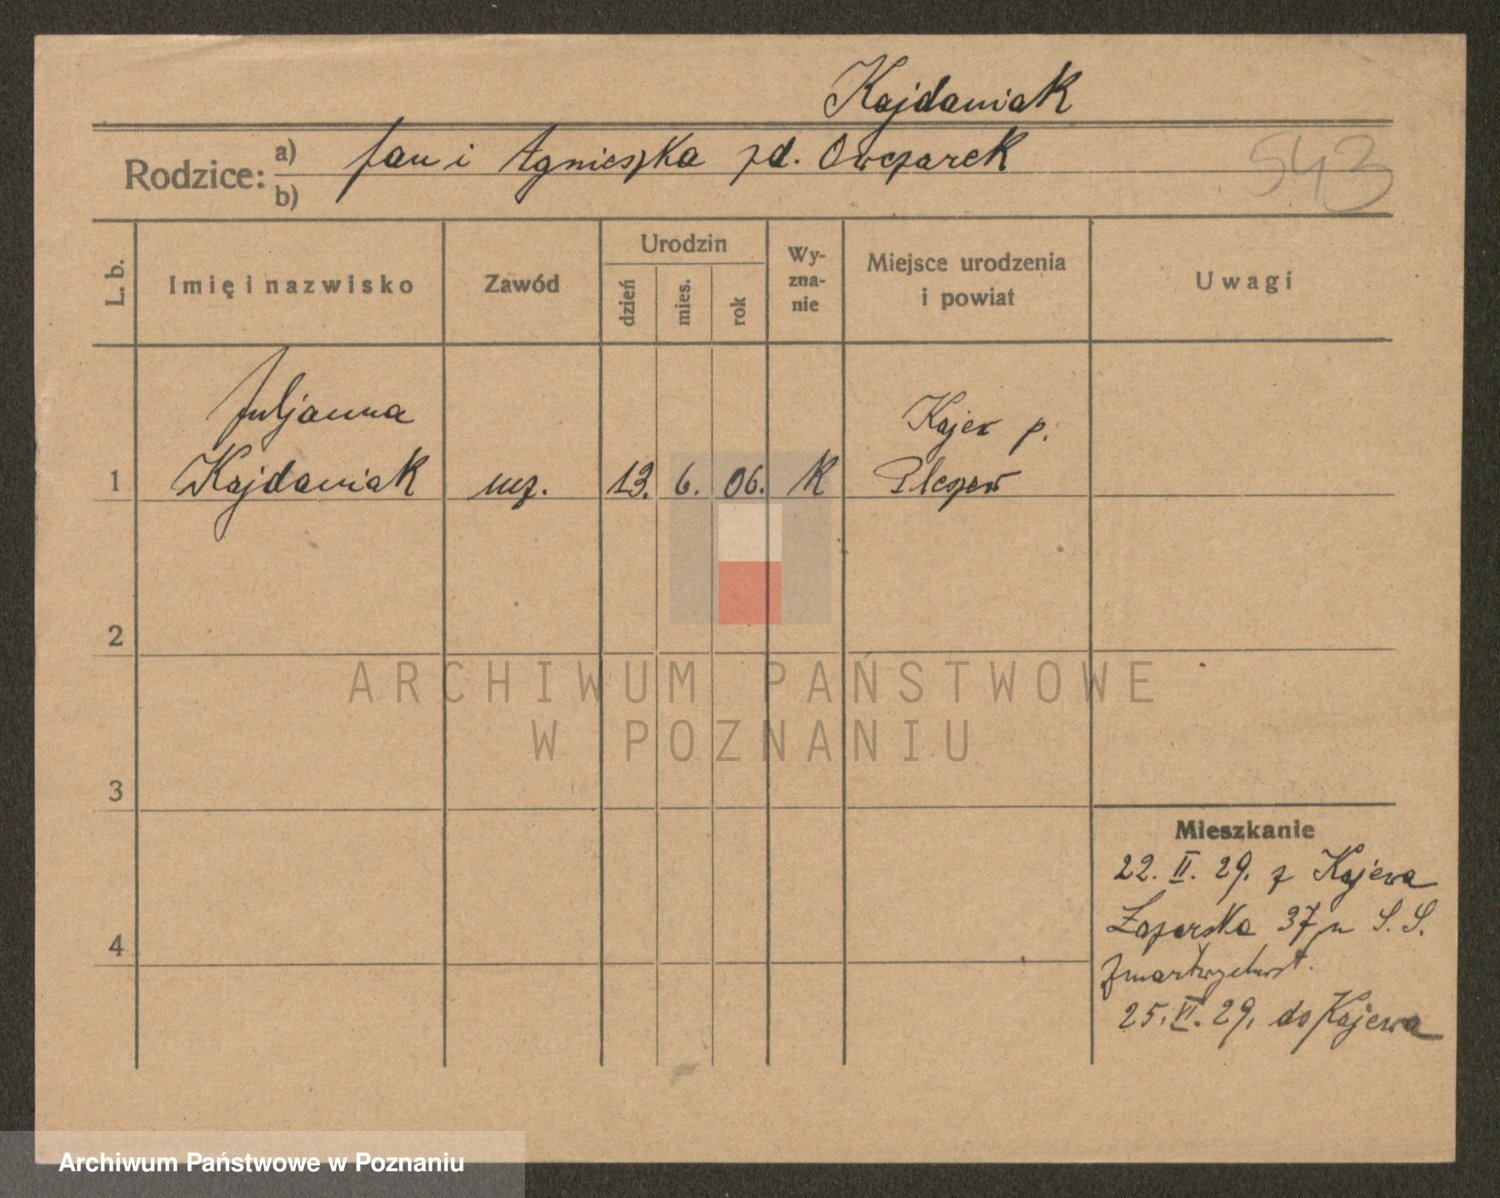 Kajdaniak
Rodzice: a) b) Jan i Agnieszka zd. Owczarek
543
L. b. Imię i nazwisko Zawód Urodzin dzień mies. rok Wy-zna-nie Miejsce urodzenia i powiat Uwagi
Juljanna Kajew p.
1 Kajdaniak ucz. 13. 6. 06. k Pleszew
2
ARCHIWUM PAŃSTWOWE
W POZNANIU
3
Mieszkanie
22. II. 29. z Kajewa
Łazarska 37 u S. S.
4
Zmartwychwst.
25. VI. 29. do Kajewa
Archiwum Państwowe w Poznaniu